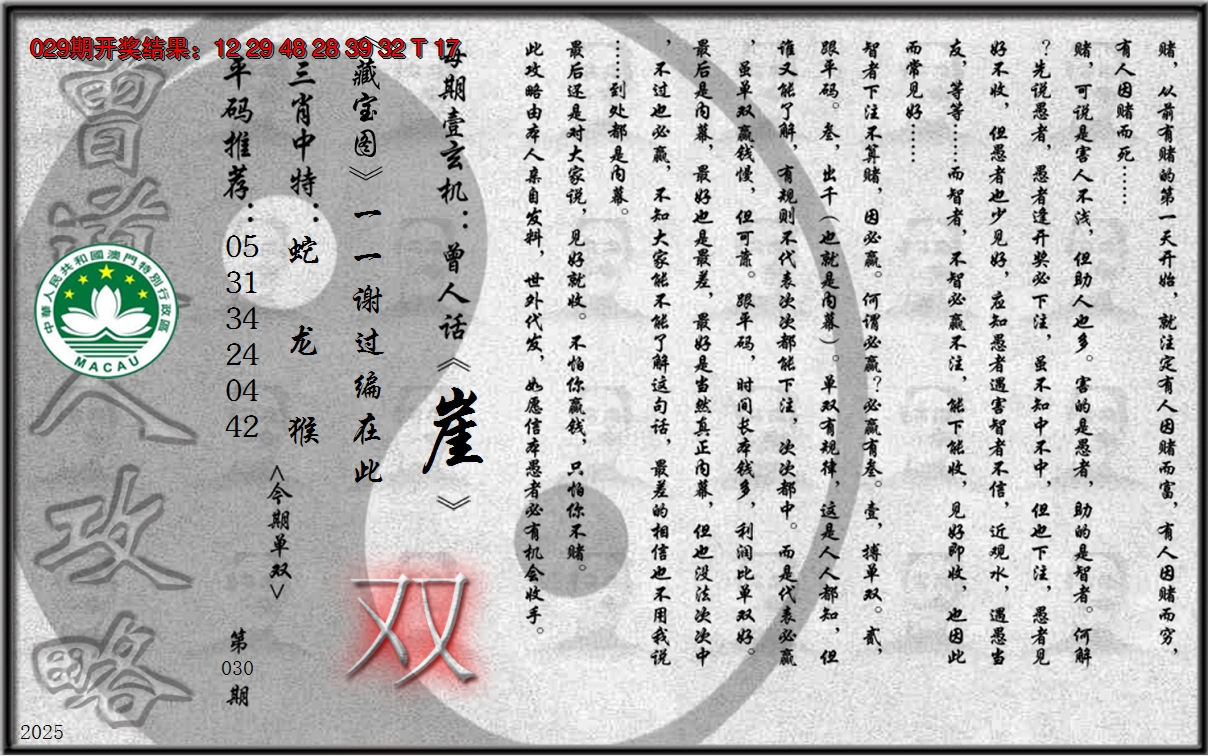 029期开奖结果：12 29 48 28 39 32 T 17
赌，从前有赌的第一天开始，就注定有人因赌而富，有人因赌而穷，
有人因赌而死……
赌，可说是害人不浅，但助人也多。害的是愚者，助的是智者。何解
？先说愚者，愚者逢开奖必下注，虽不知中不中，但也下注，愚者见
好不收，但愚者也少见好，应知愚者遇害智者不信，近观水，遇愚当
友，等等……而智者，不智必赢不注，能下能收，见好即收，也因此
而常见好……
智者下注不算赌，因必赢。何谓必赢？必赢有叁。壹，搏单双。贰，
跟平码。叁，出千（也就是内幕）。单双有规律，这是人人都知，但
谁又能了解，有规则不代表次次都能下注，次次都中。而是代表必赢
，虽单双赢钱慢，但可靠。跟平码，时间长本钱多，利润比单双好。
最后是内幕，最好也是最差，最好是当然真正内幕，但也没法次次中
，不过也必赢，不知大家能不能了解这句话，最差的相信也不用我说
……到处都是内幕。
最后还是对大家说，见好就收。不怕你赢钱，只怕你不赌。
此攻略由本人亲自发料，世外代发，如愿信本愚者必有机会收手。
每期壹玄机：曾人话《崖》
《藏宝图》一一谢过编在此
三肖中特：蛇 龙 猴
<今期单双>
双
平码推荐：05 31 34 24 04 42
第
030
期
曾道人攻略
中華人民共和國澳門特別行政區
MACAU
2025